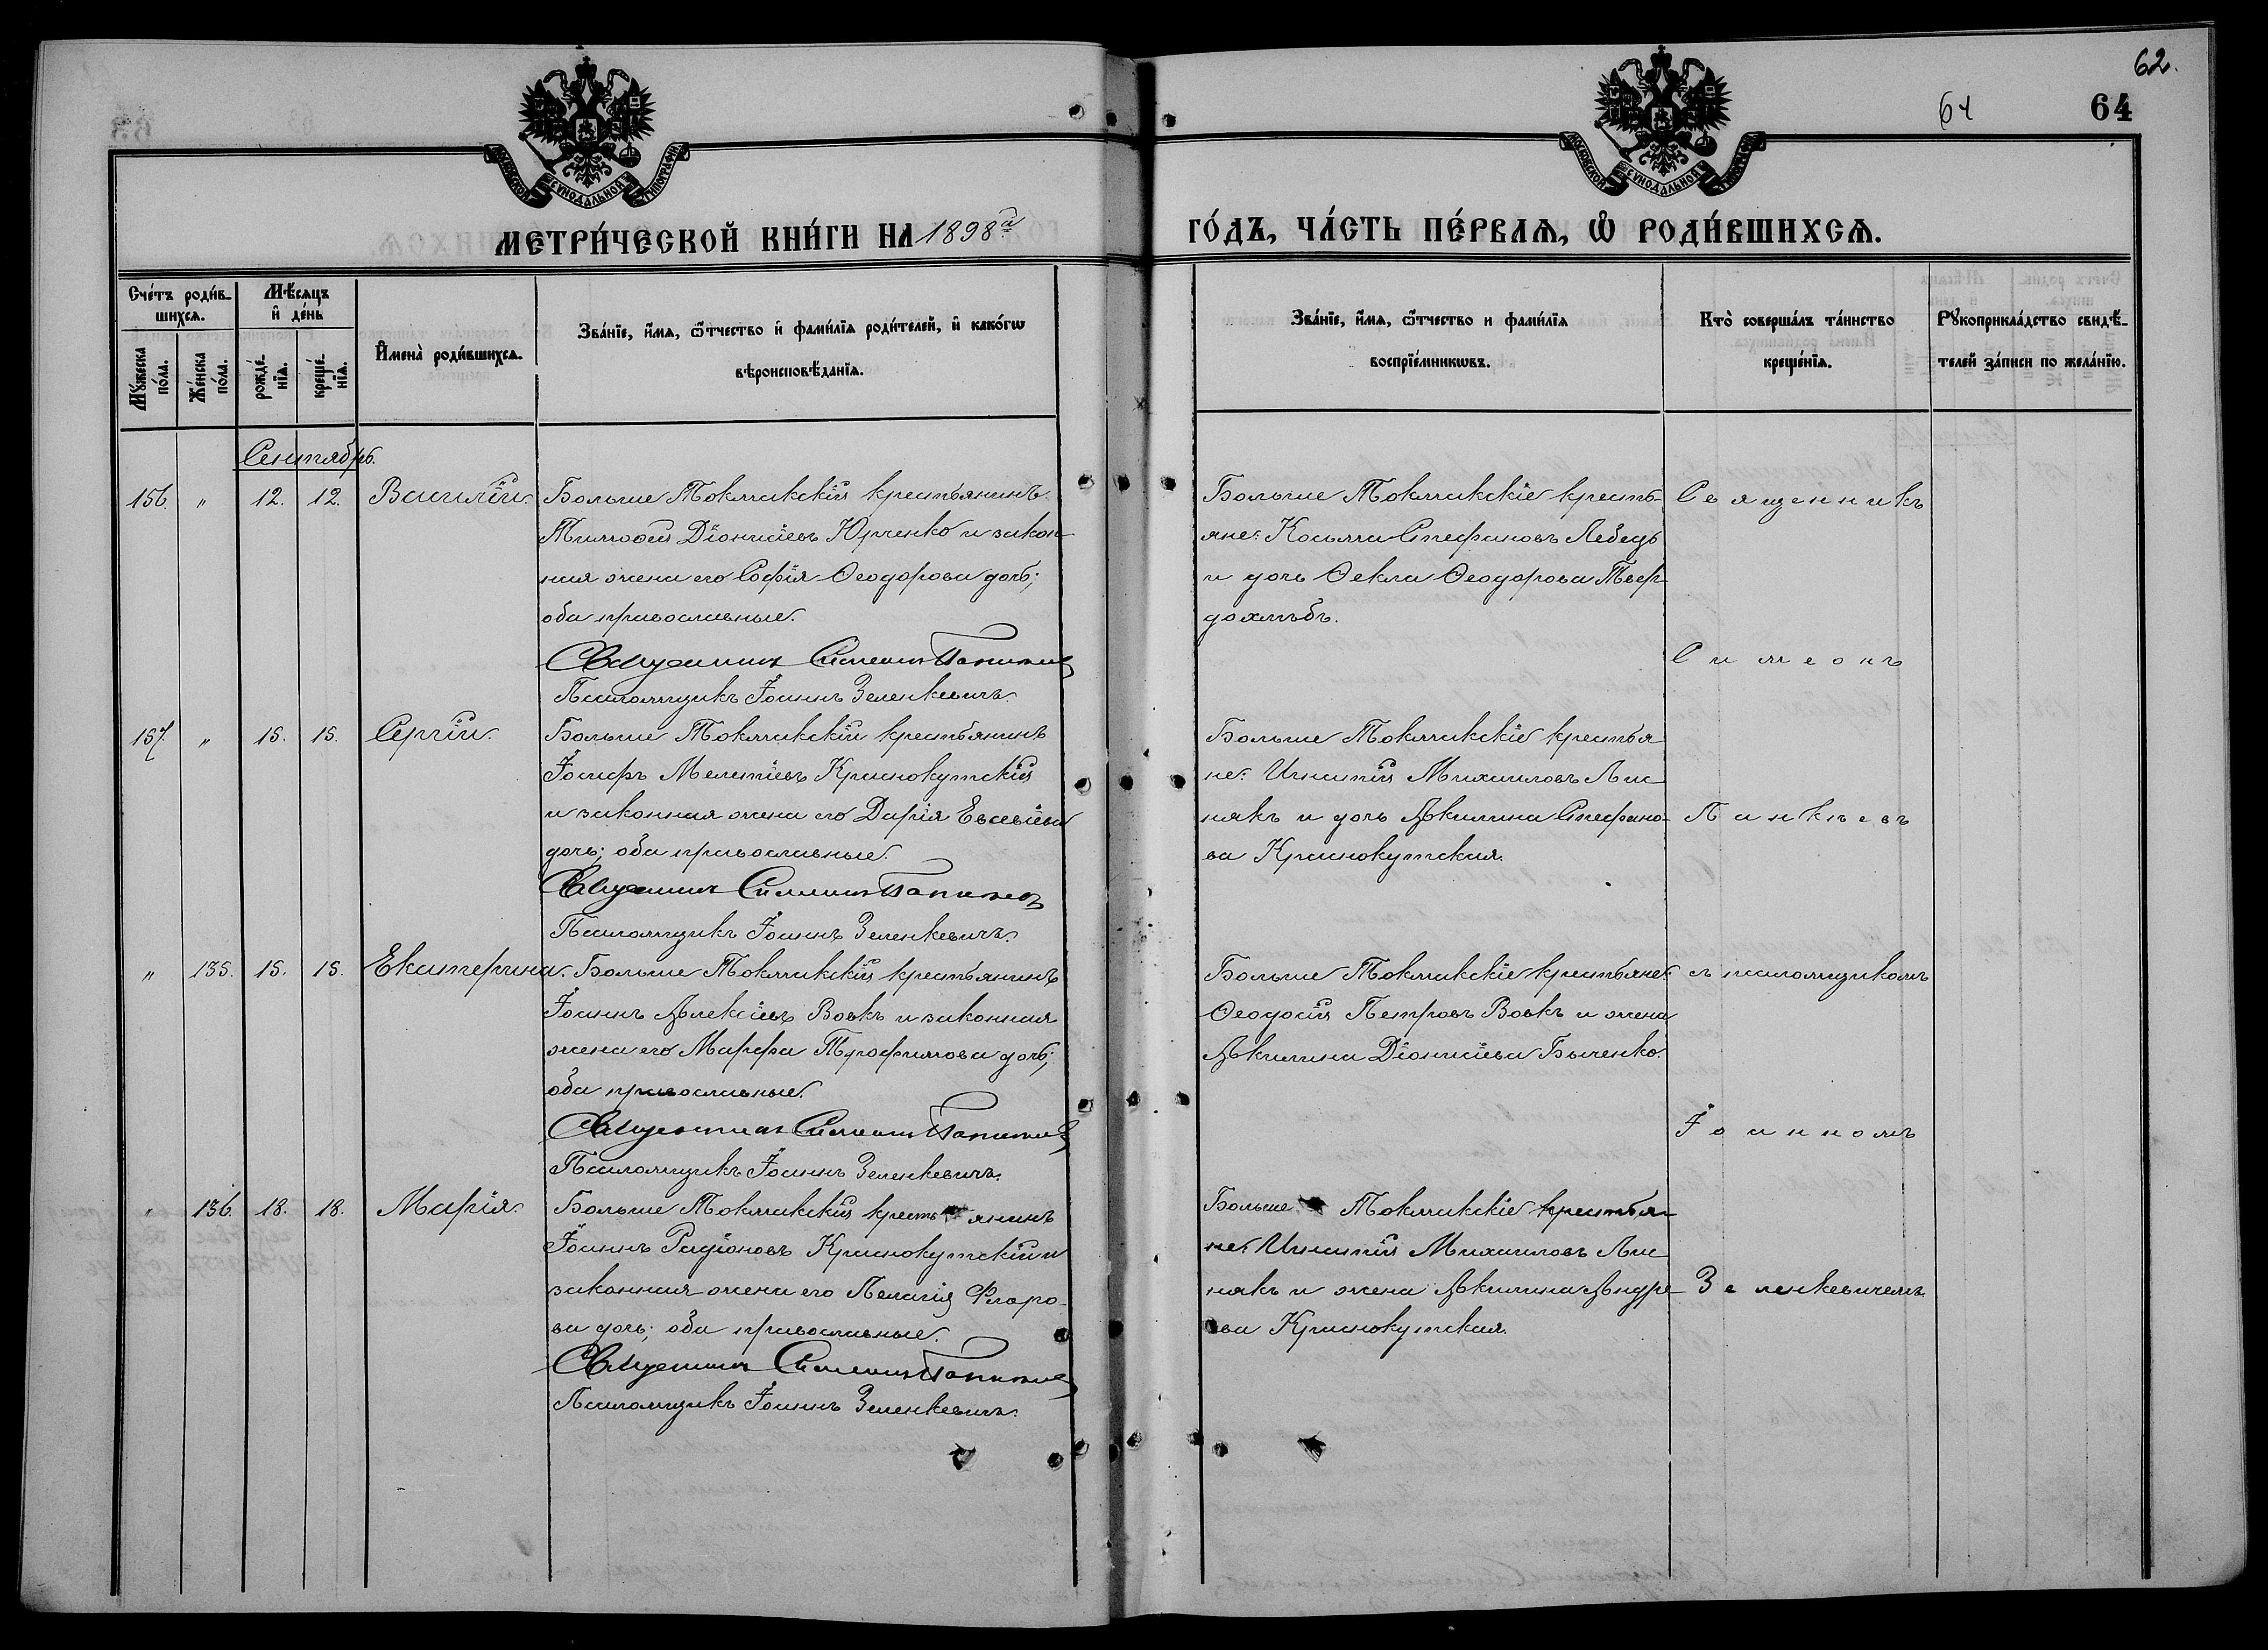 62.
64
64
МОСКОВСКОЙ СѴНОДАЛЬНОЙ ТИПОГРАФІИ
МОСКОВСКОЙ СѴНОДАЛЬНОЙ ТИПОГРАФІИ
МЕТРИ́ЧЕСКОЙ КНИ́ГИ НА 1898й
ГО́ДЪ, ЧА́СТЬ ПЕ́РВАѦ, Ѡ҆ РОДИ́ВШИХСѦ.
Сче́тъ роди́в-
шихсѧ.
Мѣ́сѧцъ
и҆ де́нь
Мꙋ́жеска
по́ла.
Же́нска
по́ла.
рожде́-
нїѧ.
креще́-
нїѧ.
И҆мена̀ роди́вшихсѧ.
Зва́нїе, и҆́мѧ, ѻ҆́тчество и҆ фами́лїѧ роди́телей, и҆ како́гѡ
вѣроисповѣ́данїѧ.
Зва́нїе, и҆́мѧ, ѻ҆́тчество и фами́лїѧ
воспрїе́мникѡвъ.
Кто̀ соверша́лъ та́инство
креще́нїѧ.
Рꙋкоприкла́дство свидѣ́-
телей за́писи по жела́нїю.
Сентябрь.
156. " 12. 12. Василій. Больше Токмакскій крестьянинъ
Тимофей Діонисіевъ Юрченко и закон-
ная жена его Софія Ѳеодорова дочь;
оба православные.
Священникъ Симеонъ
Псаломщикъ Іоаннъ Зеленкевичъ.
Больше Токмакскіе кресть-
яне: Косьма Стефановъ Лебедь
и дочь Ѳекла Ѳеодорова Твер-
дохлѣбъ.
Священникъ
Симеонъ
157. " 15. 15. Сергій. Больше Токмакскій крестьянинъ
Іосифъ Мелетіевъ Краснокутскій
и законная жена его Дарія Евсевіева
дочь; оба православные.
Священникъ Симеонъ
Псаломщикъ Іоаннъ Зеленкевичъ.
Больше Токмакскіе крестья
не: Игнатій Михаиловъ Лис
някъ и дочь Акилина Стефано-
ва Краснокутская.
" 135. 15. 15. Екатерина. Больше Токмакскій крестьянинъ
Іоаннъ Алексіевъ Вовкъ и законная
жена его Марфа Трофимова дочь;
оба православные.
Священникъ Симеонъ
Псаломщикъ Іоаннъ Зеленкевичъ.
Больше Токмакскіе крестьяне:
Ѳеодосій Петровъ Вовкъ и жена
Акилина Діонисіева Быченко.
съ псаломщикомъ
Іоанномъ
" 136. 18. 18. Марія. Больше Токмакскій крестьянинъ
Іоаннъ Радіоновъ Краснокутскій и
законная жена его Пелагія Флоро-
ва дочь; оба православные.
Священникъ Симеонъ
Псаломщикъ Іоаннъ Зеленкевичъ.
Больше Токмакскіе крестья-
не: Игнатій Михаиловъ Лис
някъ и жена Акилина Андре-
ева Краснокутская.
Зеленкевичемъ.